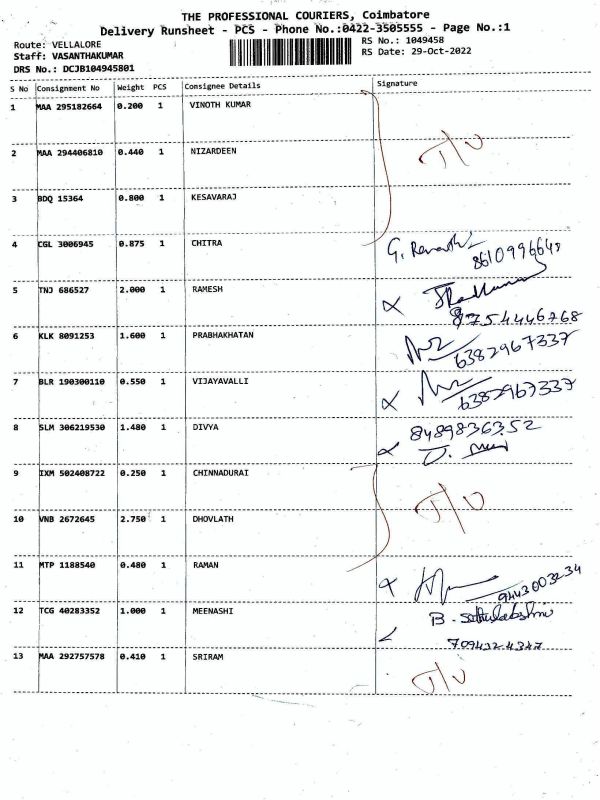 THE PROFESSIONAL COURIERS, Coimbatore
Delivery Runsheet - PCS - Phone No.:0422-3505555 - Page No.:1
Route: VELLALORE
Staff: VASANTHAKUMAR
DRS No.: DCJB104945801
RS No.: 1049458
RS Date: 29-Oct-2022
S No Consignment No Weight PCS Consignee Details Signature
1 MAA 295182664 0.200 1 VINOTH KUMAR
2 MAA 294406810 0.440 1 NIZARDEEN
T/U
3 BDQ 15364 0.800 1 KESAVARAJ
4 CGL 3006945 0.875 1 CHITRA
8610996648
5 TNJ 686527 2.000 1 RAMESH
8754446768
6 KLK 8091253 1.600 1 PRABHAKHATAN
6382967337
7 BLR 190300110 0.550 1 VIJAYAVALLI
6382967337
8 SLM 306219530 1.480 1 DIVYA
8489836352
9 IXM 502408722 0.250 1 CHINNADURAI
T/U
10 VNB 2672645 2.750 1 DHOVLATH
11 MTP 1188540 0.480 1 RAMAN
9443003234
12 TCG 40283352 1.000 1 MEENASHI
13 MAA 292757578 0.410 1 SRIRAM
T/U